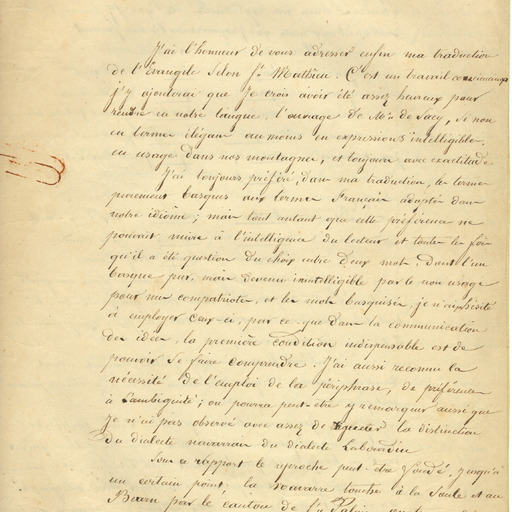 J'ai l'honneur de vous adresser enfin ma traduction
de l'Evangile Selon St. Mathieu. C'est un travail consciencieux
j'y ajouterai que je crois avoir été assez heureux pour
rendre en notre langue, l'ouvrage de Mr. de Sacy, si non
en termes élégans au moins en expressions intelligibles,
en usage dans nos montagnes, et toujours avec exactitude
J'ai toujours préféré, dans ma traduction, les termes
purement basques aux termes Français adoptés dans
notre idiôme; mais tout autant que cette préférence ne
pouvait nuire à l'intelligence du lecteur et toutes les fois
qu'il a été question du choix entre deux mots, dont l'un
basque pur, mais devenu inintelligible par le non usage
pour mes compatriotes, et les mots basquisés, je n'ai hésité
à employer ceux-ci, par ce que dans la communication
des idées, la première condition indispensable est de
pouvoir se faire comprendre. J'ai aussi reconnu la
nécessité de l'emploi de la périphrase, de préférence
à l'ambiguité; on pourra peut-être y remarquer aussi que
je n'ai pas observé avec assez de la distinction
du dialecte navarrais du dialecte Labourdin
Sous ce rapport le reproche peut-être fondé, jusqu'à
un certain point: la navarre touche à la Soule et au
Bearn par le canton de St. Palais